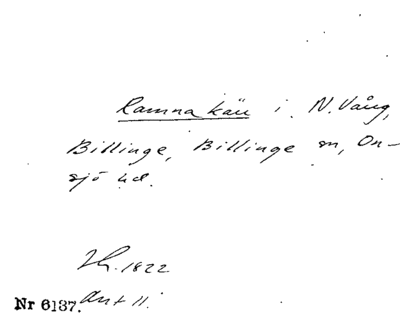 Ramna käu i N. Vång,
Billinge, Billinge sn, On-
sjö hd.
1822
Nr 6137. Ant 11.